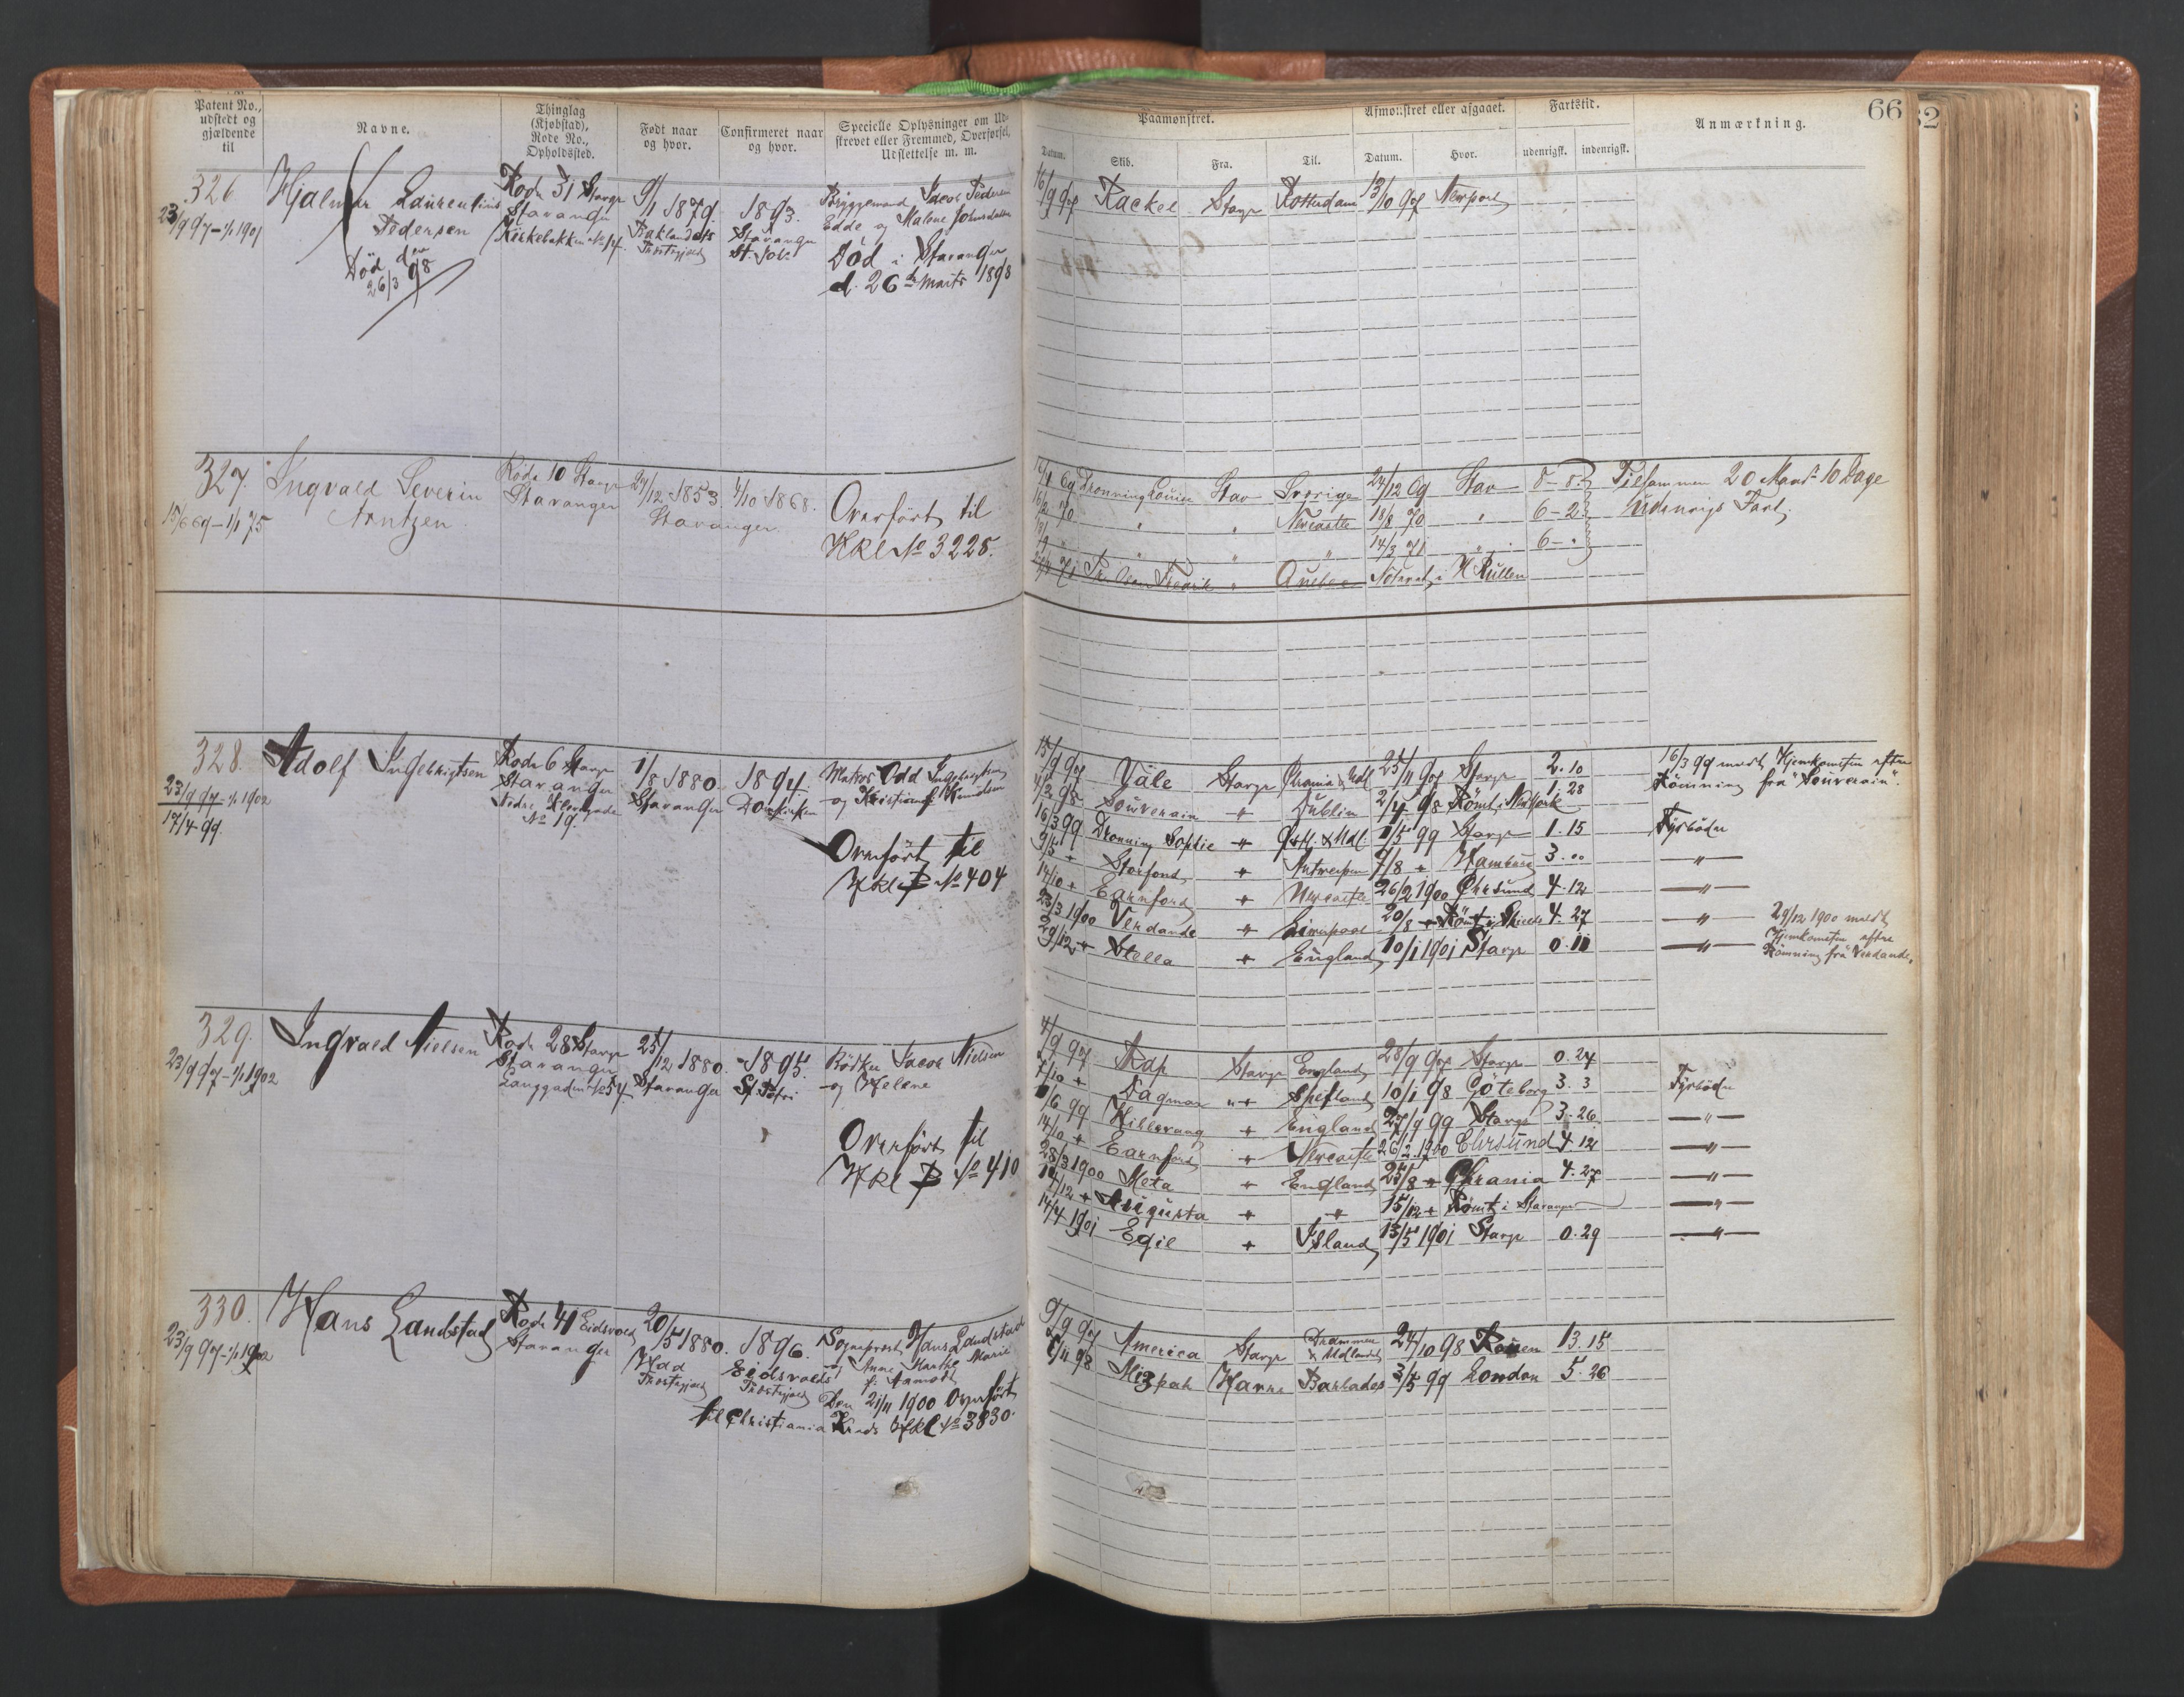 Patent No.,
udstedt og
gjældende
til
Navne.
Thinglag
(Kjøbstad),
Rode No.,
Opholdssted.
Født naar
og hvor.
Confirmeret naar
og hvor.
Specielle Oplysninger om Ud-
skrevet eller Fremmed, Overførsel,
Udslettelse m. m.
Paamønstret.
Afmønstret eller afgaaet.
Fartstid.
Anmærkning.
66
32
Datum.
Skib.
Fra.
Til.
Datum.
Hvor.
udenrigsk.
indenrigsk.
326
23/9 97 – 1/1 1901
Hjalmar Laurentius
Pedersen
Død den
26/3 98
Rode 31 Stavgr
Stavanger
Kirkebakken No 14
9/1 1879.
Baklandets
Præstegjæld
1893.
Stavanger
St. Joh.
Bryggemand Jacob Pedersen
Edde og Malene Johnsdatter
Død i Stavanger
d. 26de Marts 1898
16/9 97 Rackel Stavgr Rotterdam 13/10 97 Newport
327.
15/6 69 – 1/1 75
Ingvald Severin
Arntzen
Rode 10 Stavgr
Stavanger
24/12 1853
Stavanger
4/10 1868.
Overført til
HKl No 3228.
Dronning Louise Stav Sverige 24/12 69 Stav 8 – 8
16/2 70 " " Newcastle 18/8 70 " 6 – 2
" " " 14/3 71 " 6 – "
Noteret i H Rullen
Tilsammen 20 Maand 10 Dage
Udenrigs Fart.
328.
23/9 97 – 1/1 1902
17/4 99.
Adolf Ingebrigtsen
Rode 6 Stavgr
Stavanger
Nedre Blevegade
No 19.
1/8 1880.
Stavanger
1894.
Domkirken
Matros Odd Ingebrigtsen
og Kristiane Knudsen
Overført til
Hkl B No 404
15/9 97 Yäle Stavgr Chrania & Udl. 25/11 97 Stavgr 2.10
4/2 98 Souverain " Dublin 2/4 98 Rømt i NewYork 1.28
16/3 99 Dronning Sophie " Østl. & Udl. 1/5 99 Stavgr 1.15
9/5 " Storfond " Antwerpen 7/8 " Hamburg 3."
14/10 " Earnford " Newcastle 26/2 1900 Ekersund 4.12
23/3 1900 Verdande " Liverpool 20/8 " Rømt i Shields 4.27
29/12 " Stella " England 10/1 1901 Stavgr 0.11
16/3 99 meldt Hjemkomsten efter
Rømning fra "Souverain".
Fyrbøder
"
"
" 29/12 1900 meldt
" Hjemkomsten efter
Rømning fra "Verdande".
329.
23/9 97 – 1/1 1902
Ingvald Nielsen
Rode 28 Stavgr
Stavanger
Langgaden No 54
25/12 1880.
Stavanger
1895.
St. Petri
Bødker Jacob Nielsen
og Helene
Overført til
Hkl B No 410
4/9 97 Rap Stavgr England 28/9 97 Stavgr 0.24
7/10 " Dagmar " Shetland 10/1 98 Göteborg 3.3
1/6 99 Hillevaag " England 27/9 99 Stavgr 3.26
14/10 " Earnford " Newcastle 26/2 1900 Ekersund 4.12
28/3 1900 Meta " England 25/8 " Chrania 4.27
14/12 " Augusta " " 15/12 " Rømt i Stavanger
14/4 1901 Egil " Island 13/5 1901 Stavgr 0.29
Fyrbøder
"
"
"
"
"
330.
23/9 97 – 1/1 1902
Hans Landstad
Rode 41 Eidsvold
Stavanger
20/5 1880.
Had
Præstegjæld
1896.
Eidsvolds
Præstegjæld
Sogneprest Hans Landstad
og Anne Marthe Marie
f. Aamodt
Den 21/11 1900 Overført
til Christiania Kreds Hkl No 3830.
9/9 97 America Stavgr Drammen & Udlandet 24/10 98 Rouen 13.15
8/11 98 Mizpah Havre Barbados 3/5 99 London 5.26